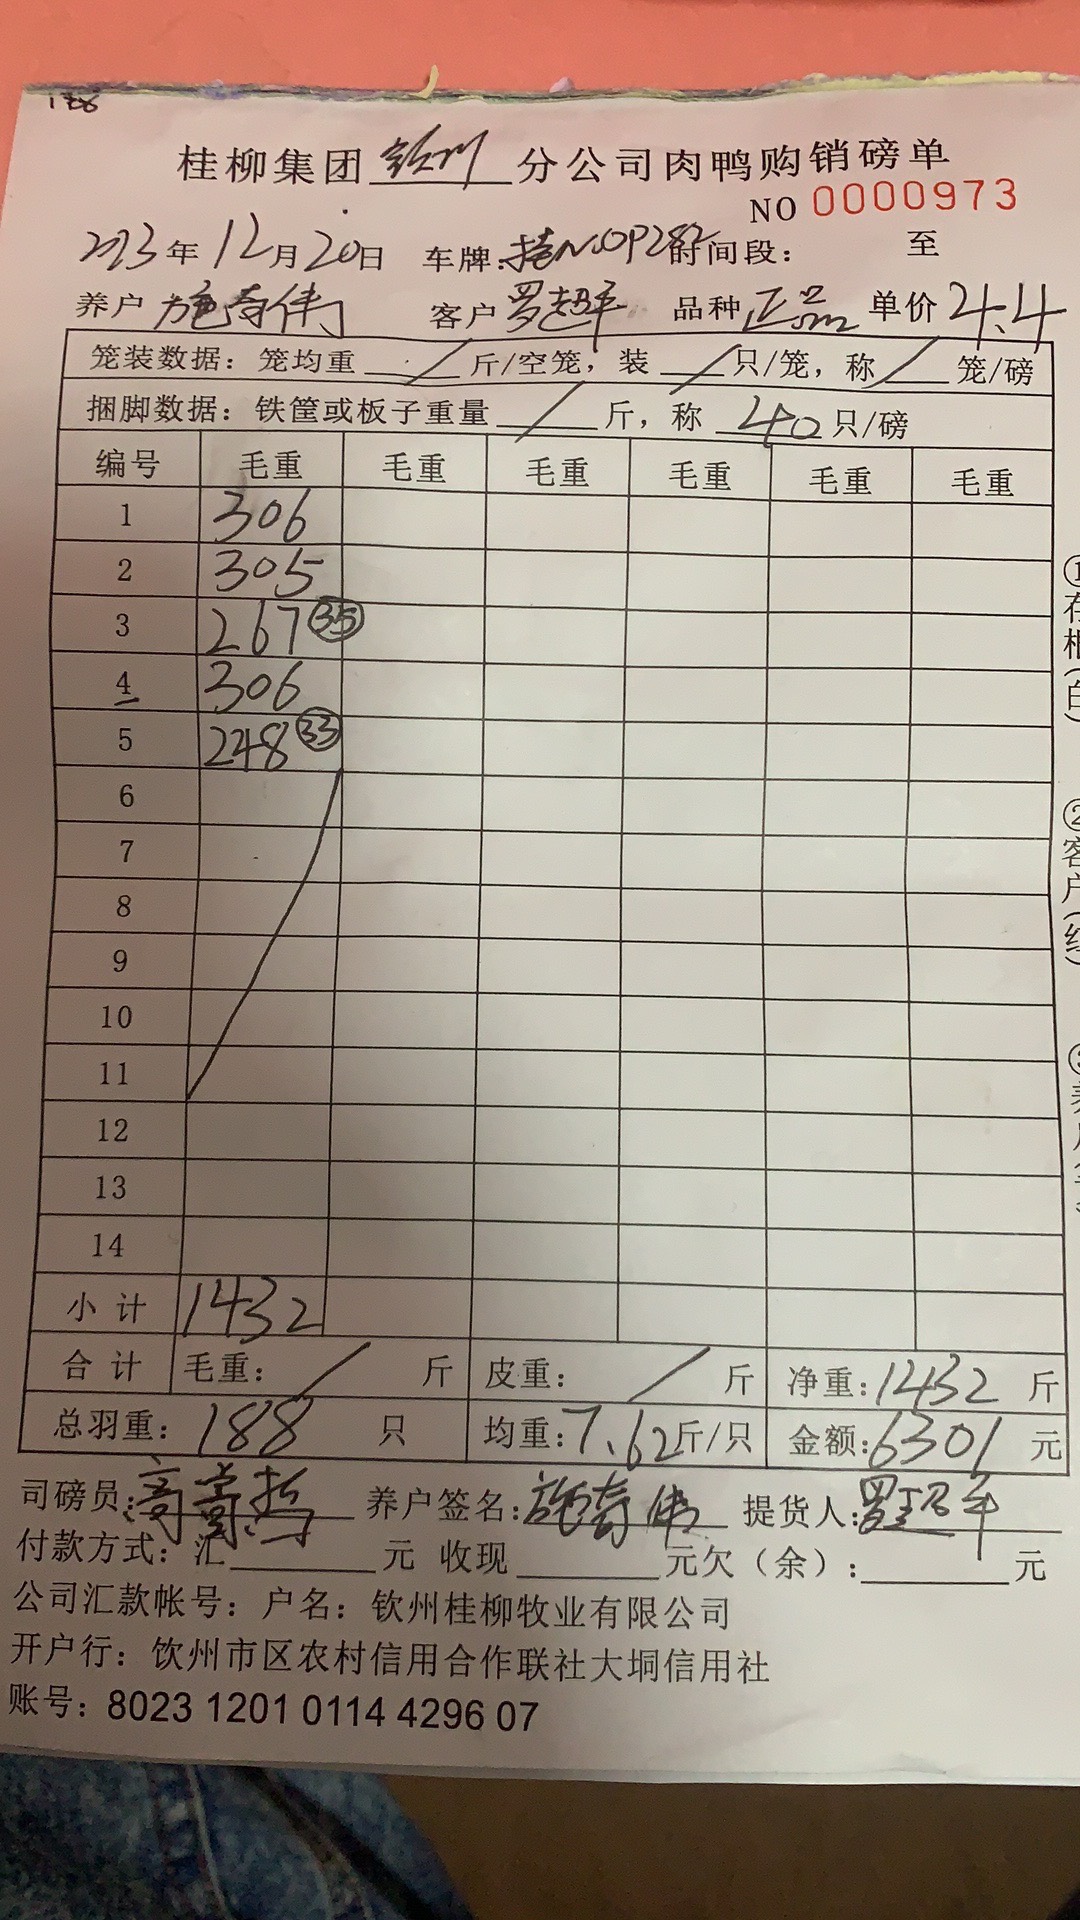 188
桂柳集团钦州分公司肉鸭购销磅单
NO 0000973
2023年12月20日 车牌:桂N.0P282时间段: 至
养户 施奇伟 客户 罗超平 品种 正品 单价 4.4
笼装数据: 笼均重 / 斤/空笼, 装 / 只/笼, 称 / 笼/磅
捆脚数据: 铁筐或板子重量 / 斤, 称 40 只/磅
编号 毛重 毛重 毛重 毛重 毛重 毛重
1 306
2 305
3 267 (35)
4 306
5 248 (33)
6
7
8
9
10
11
12
13
14
小计 1432
合计 毛重: / 斤 皮重: / 斤 净重:1432 斤
总羽重: 188 只 均重:7.62斤/只 金额:6301 元
司磅员: 养户签名:施奇伟 提货人:罗超平
付款方式: 汇 元 收现 元欠(余): 元
公司汇款帐号: 户名: 钦州桂柳牧业有限公司
开户行: 钦州市区农村信用合作联社大垌信用社
账号: 8023 1201 0114 4296 07
①存根(白)
②客户(红)
③养户